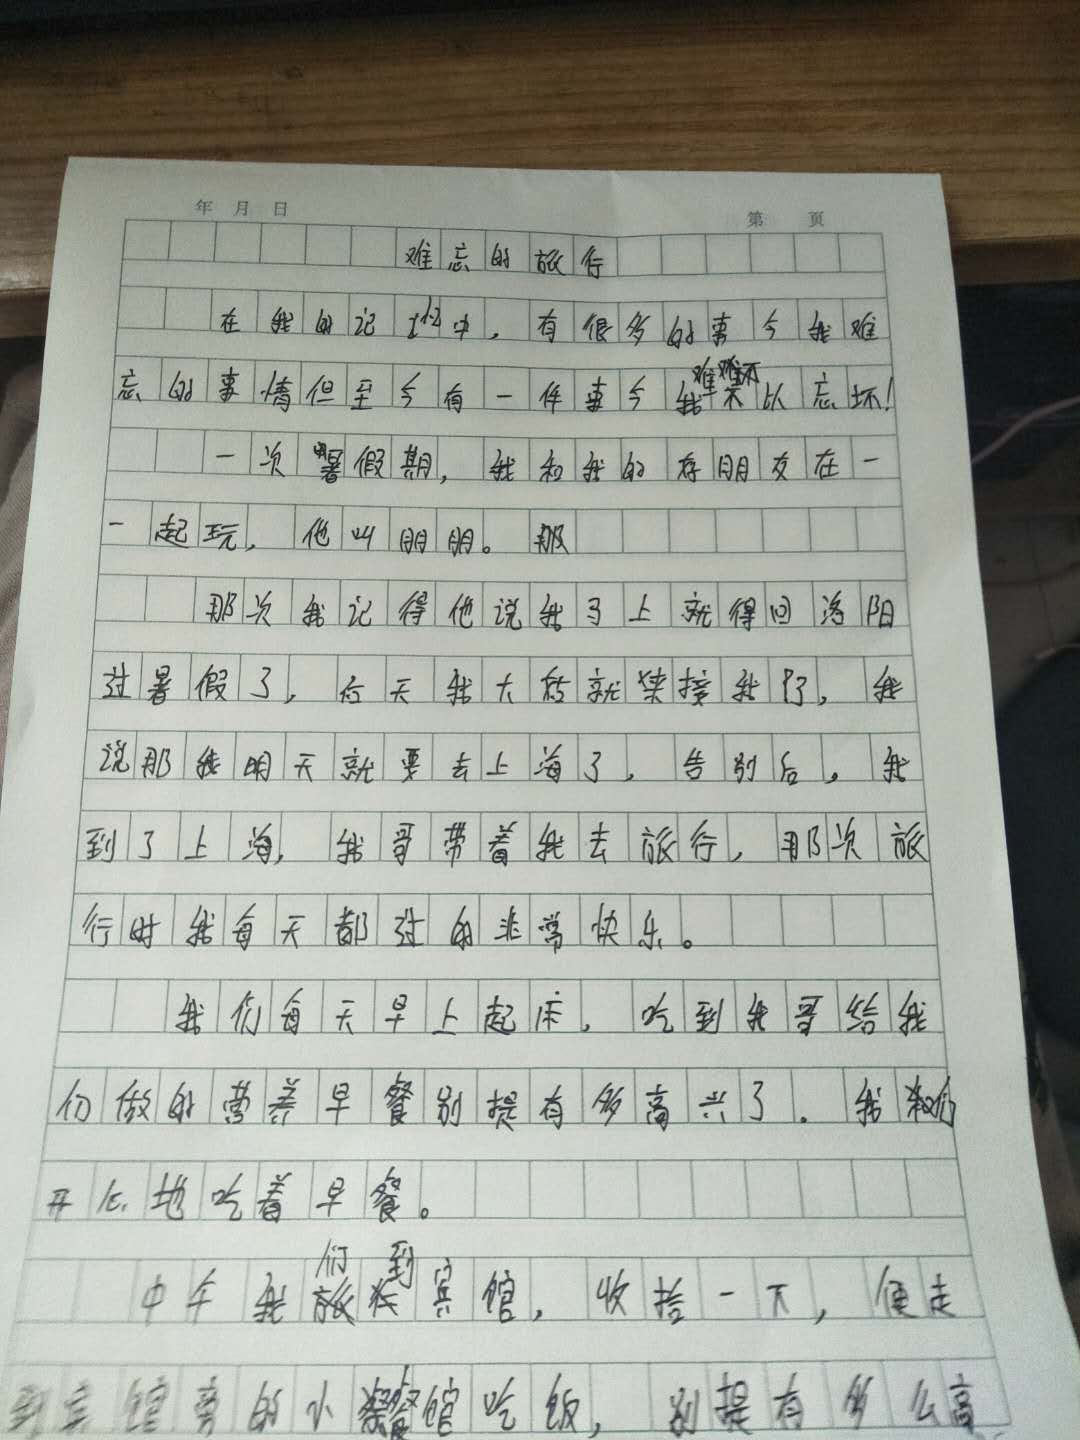 年 月 日
第 页
难忘的旅行
在我的记忆中，有很多的事令我难
忘的事情但至今有一件事令我难以忘怀！
一次暑假期，我和我的好朋友在一
一起玩，他叫朋朋。那
那次我记得他说我马上就得回洛阳
过暑假了，后天我大姑就来接我了，我
说那我明天就要去上海了，告别后，我
到了上海，我哥带着我去旅行，那次旅
行时我每天都过的非常快乐。
我们每天早上起床，吃到我哥给我
们做的营养早餐别提有多高兴了。我们
开心地吃着早餐。
中午我们到宾馆，收拾一下，便走
到宾馆旁的小餐馆吃饭，别提有多么高